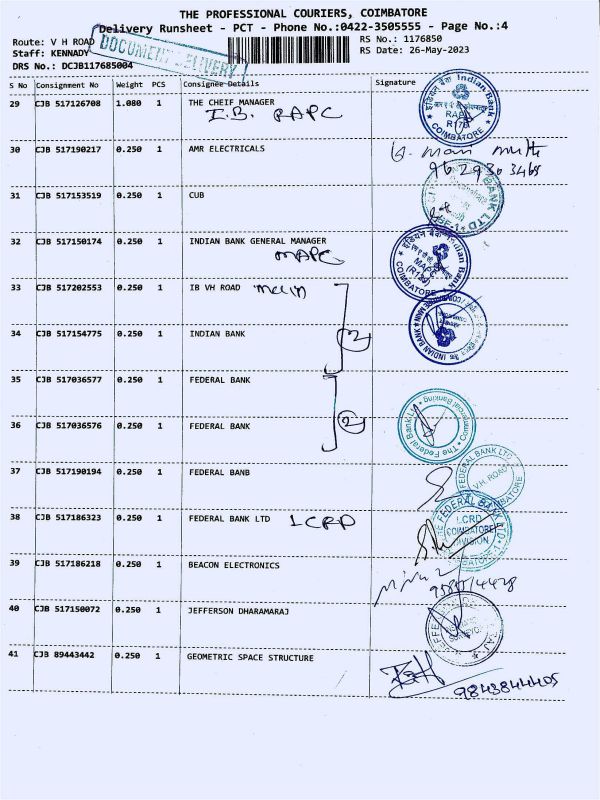 THE PROFESSIONAL COURIERS, COIMBATORE
Delivery Runsheet - PCT - Phone No.:0422-3505555 - Page No.:4
Route: V H ROAD RS No.: 1176850
Staff: KENNADY RS Date: 26-May-2023
DRS No.: DCJB117685004
DOCUMENT DELIVERY
S No Consignment No Weight PCS Consignee Details Signature
29 CJB 517126708 1.080 1 THE CHEIF MANAGER
I.B. RAPC
Indian Bank RAPC COIMBATORE
30 CJB 517190217 0.250 1 AMR ELECTRICALS
9629303468
31 CJB 517153519 0.250 1 CUB
BANK LTD
32 CJB 517150174 0.250 1 INDIAN BANK GENERAL MANAGER
MAPC
Indian Bank MAPC COIMBATORE
33 CJB 517202553 0.250 1 IB VH ROAD main
34 CJB 517154775 0.250 1 INDIAN BANK
2
INDIAN BANK COIMBATORE MAIN
35 CJB 517036577 0.250 1 FEDERAL BANK
36 CJB 517036576 0.250 1 FEDERAL BANK
2
The Federal Bank Ltd
37 CJB 517190194 0.250 1 FEDERAL BANB
FEDERAL BANK LTD V.H. ROAD
38 CJB 517186323 0.250 1 FEDERAL BANK LTD LCRD
THE FEDERAL BANK LTD LCRD COIMBATORE DIVISION
39 CJB 517186218 0.250 1 BEACON ELECTRONICS
40 CJB 517150072 0.250 1 JEFFERSON DHARAMARAJ
41 CJB 89443442 0.250 1 GEOMETRIC SPACE STRUCTURE
9843844405